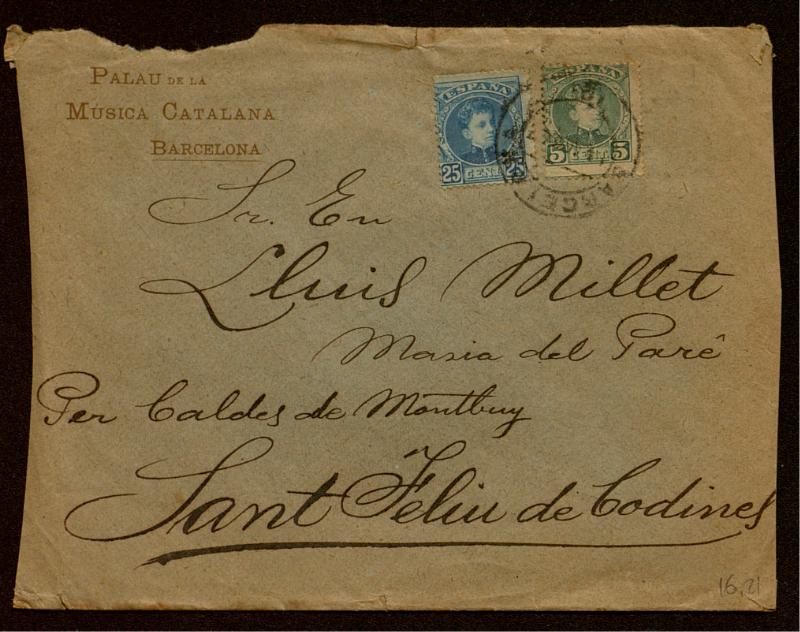 PALAU DE LA
MÚSICA CATALANA
BARCELONA
ESPAÑA
25 CENT. 25
ESPAÑA
5 CENT. 5
BARCEL
Sr. En
Lluis Millet
Masia del Paré
Per Caldes de Montbuy
Sant Feliu de Codines
16,21